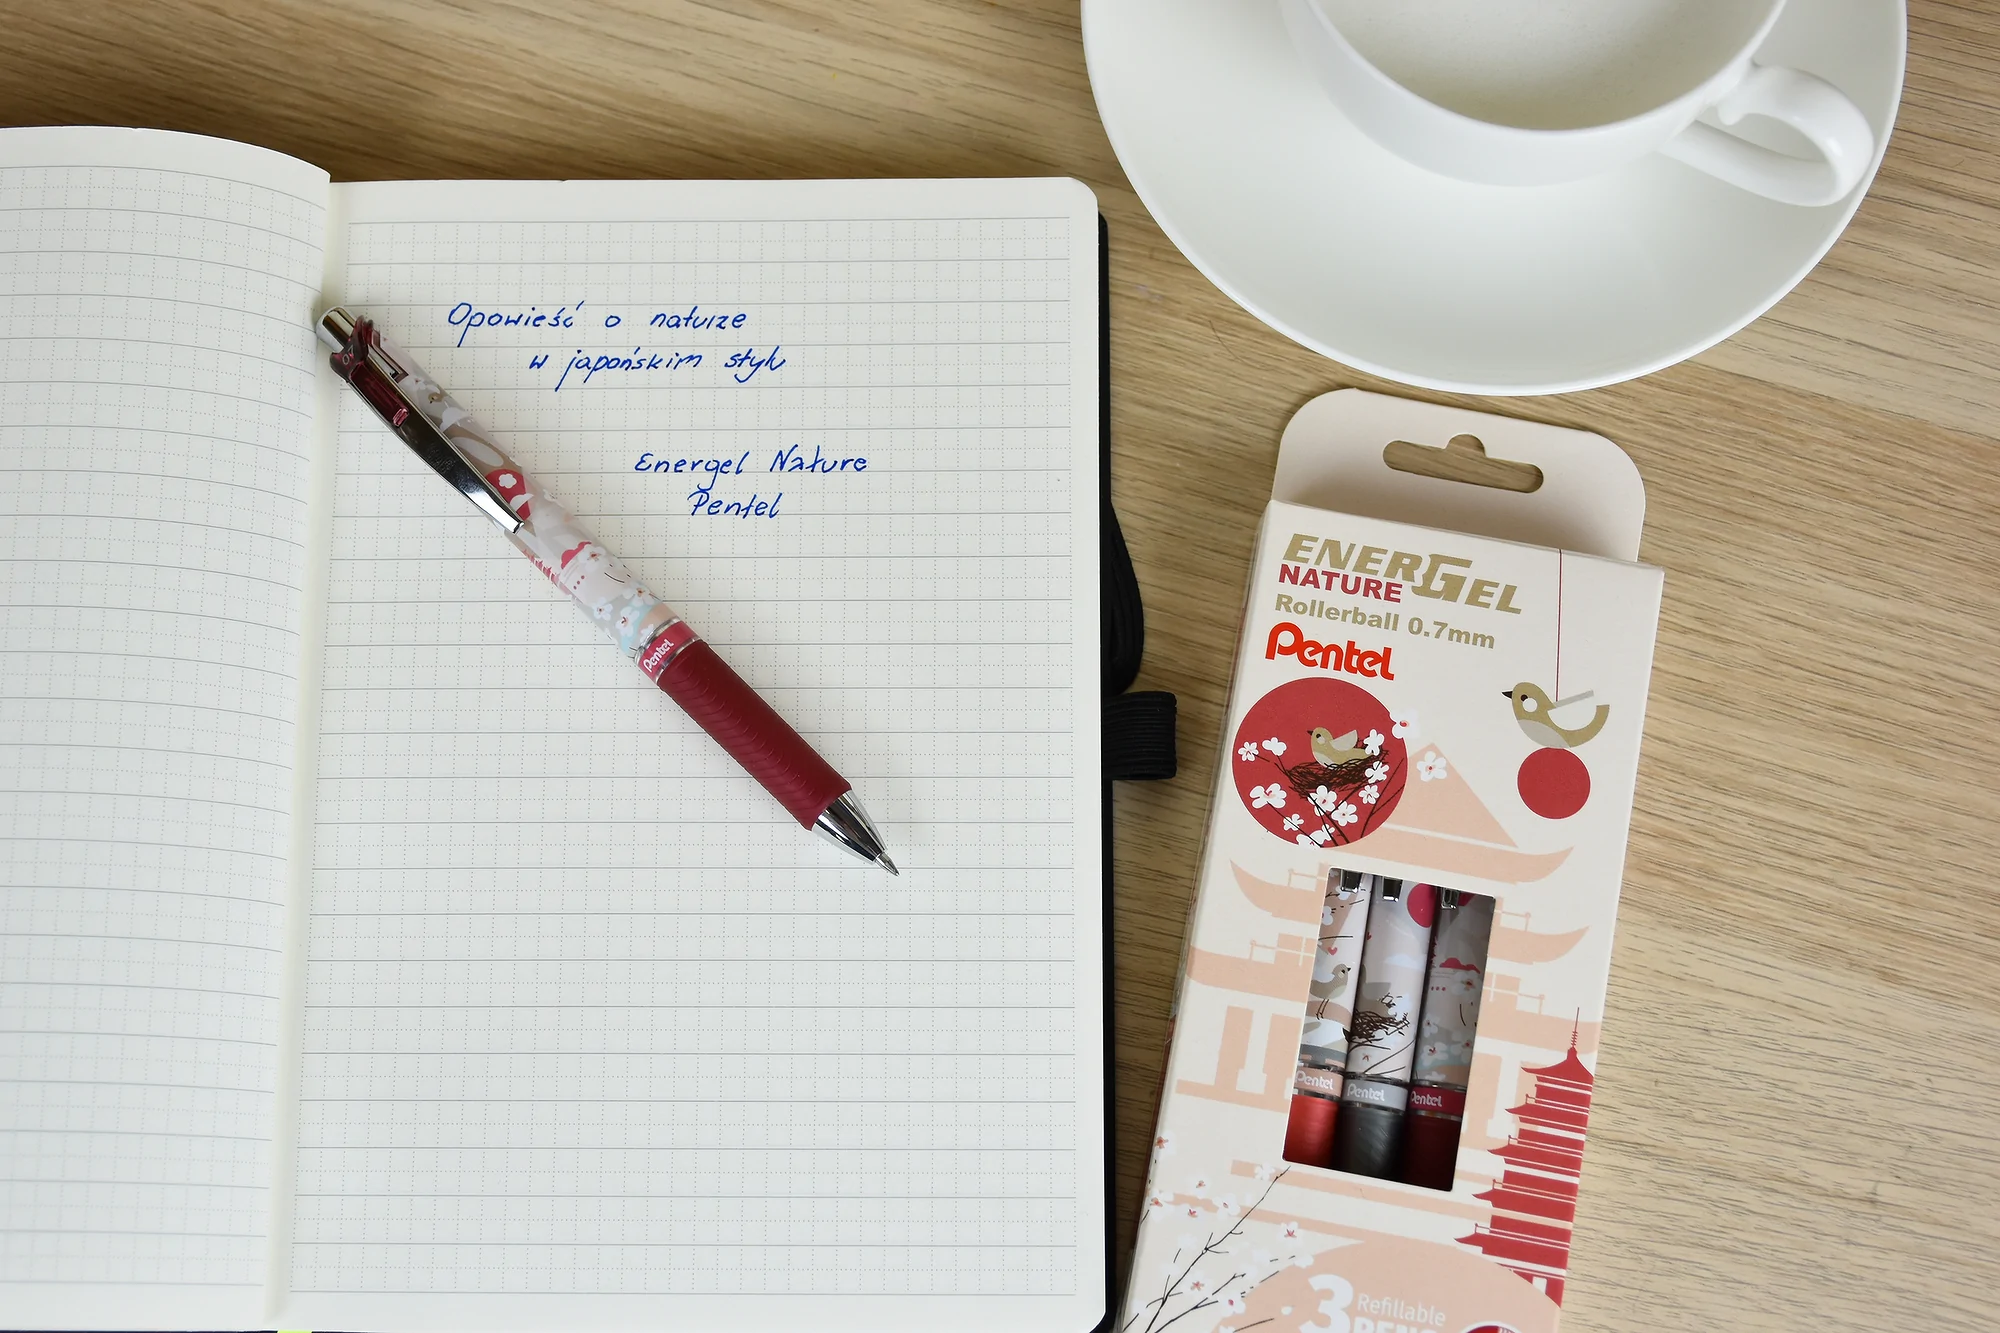 Opowieść o naturze
w japońskim stylu
Energel Nature
Pentel
Pentel
ENERGEL
NATURE
Rollerball 0.7mm
Pentel
Pentel
Pentel
Pentel
3 Refillable